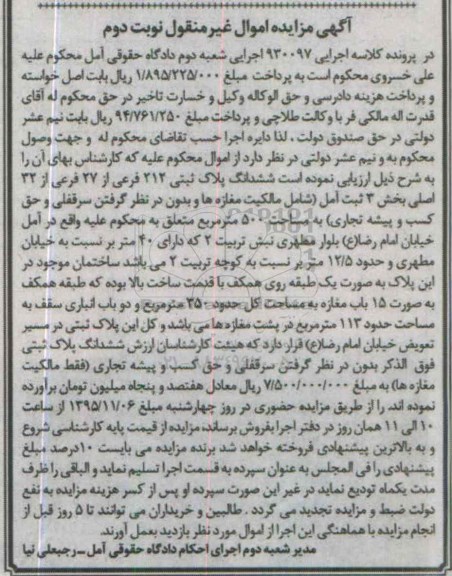 آگهی مزایده اموال غیر منقول نوبت دوم
در پرونده کلاسه اجرایی ۹۳۰۰۹۷ اجرایی شعبه دوم دادگاه حقوقی آمل محکوم علیه
علی خسروی محکوم است به پرداخت مبلغ ۱/۸۹۵/۲۲۵/۰۰۰ ریال بابت اصل خواسته
و پرداخت هزینه دادرسی و حق الوکاله وکیل و خسارت تاخیر در حق محکوم له آقای
قدرت اله مالکی فر با وکالت طلاچی و پرداخت مبلغ ۹۴/۷۶۱/۲۵۰ ریال بابت نیم عشر
دولتی در حق صندوق دولت ، لذا دایره اجرا حسب تقاضای محکوم له و جهت وصول
محکوم به و نیم عشر دولتی در نظر دارد از اموال محکوم علیه که کارشناس بهای آن را
به شرح ذیل ارزیابی نموده است ششدانگ پلاک ثبتی ۲۱۲ فرعی از ۲۷ فرعی از ۳۲
اصلی بخش ۳ ثبت آمل (شامل مالکیت مغازه ها و بدون در نظر گرفتن سرقفلی و حق
کسب و پیشه تجاری) به مساحت ۵۰۰ مترمربع متعلق به محکوم علیه واقع در آمل
خیابان امام رضا(ع) بلوار مطهری نبش تربیت ۲ که دارای ۴۰ متر بر نسبت به خیابان
مطهری و حدود ۱۲/۵ متر بر نسبت به کوچه تربیت ۲ می باشد ساختمان موجود در
این پلاک به صورت یک طبقه روی همکف با قدمت ساخت بالا بوده که طبقه همکف
به صورت ۱۵ باب مغازه به مساحت کل حدود ۳۵۰ مترمربع و دو باب انباری سقف به
مساحت حدود ۱۱۳ مترمربع در پشت مغازه ها می باشد و کل این پلاک ثبتی در مسیر
تعویض خیابان امام رضا(ع) قرار دارد که هیئت کارشناسان ارزش ششدانگ پلاک ثبتی
فوق الذکر بدون در نظر گرفتن سرقفلی و حق کسب و پیشه تجاری (فقط مالکیت
مغازه ها) به مبلغ ۷/۵۰۰/۰۰۰/۰۰۰ ریال معادل هفتصد و پنجاه میلیون تومان برآورده
نموده اند. را از طریق مزایده حضوری در روز چهارشنبه مبلغ ۱۳۹۵/۱۱/۰۶ از ساعت
۱۰ الی ۱۱ همان روز در دفتر اجرا بفروش برساند، مزایده از قیمت پایه کارشناسی شروع
و به بالاترین پیشنهادی فروخته خواهد شد برنده مزایده می بایست ۱۰درصد مبلغ
پیشنهادی را فی المجلس به عنوان سپرده به قسمت اجرا تسلیم نماید و الباقی را ظرف
مدت یکماه تودیع نماید در غیر این صورت سپرده او پس از کسر هزینه مزایده به نفع
دولت ضبط و مزایده تجدید می گردد . طالبین و خریداران می توانند تا ۵ روز قبل از
انجام مزایده با هماهنگی این اجرا از اموال مورد نظر بازدید بعمل آورند.
مدیر شعبه دوم اجرای احکام دادگاه حقوقی آمل ــ رجبعلی نیا